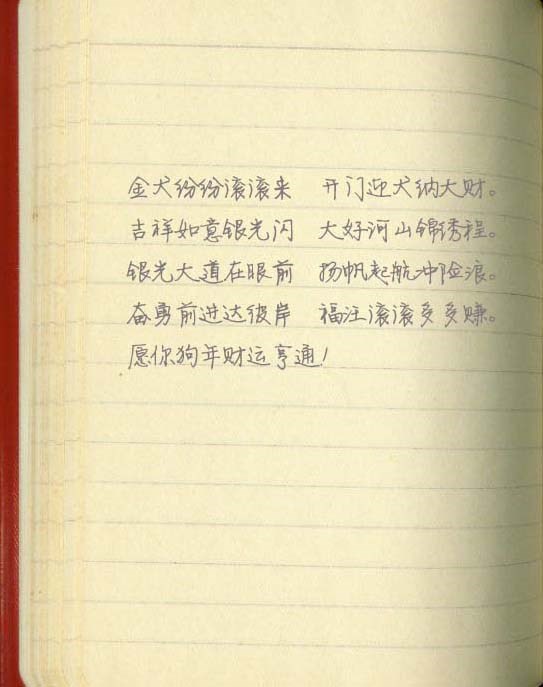 金犬纷纷滚滚来 开门迎犬纳大财。
吉祥如意银光闪 大好河山锦绣程。
银光大道在眼前 扬帆起航冲险浪。
奋勇前进达彼岸 福注滚滚多多赚。
愿你狗年财运亨通!